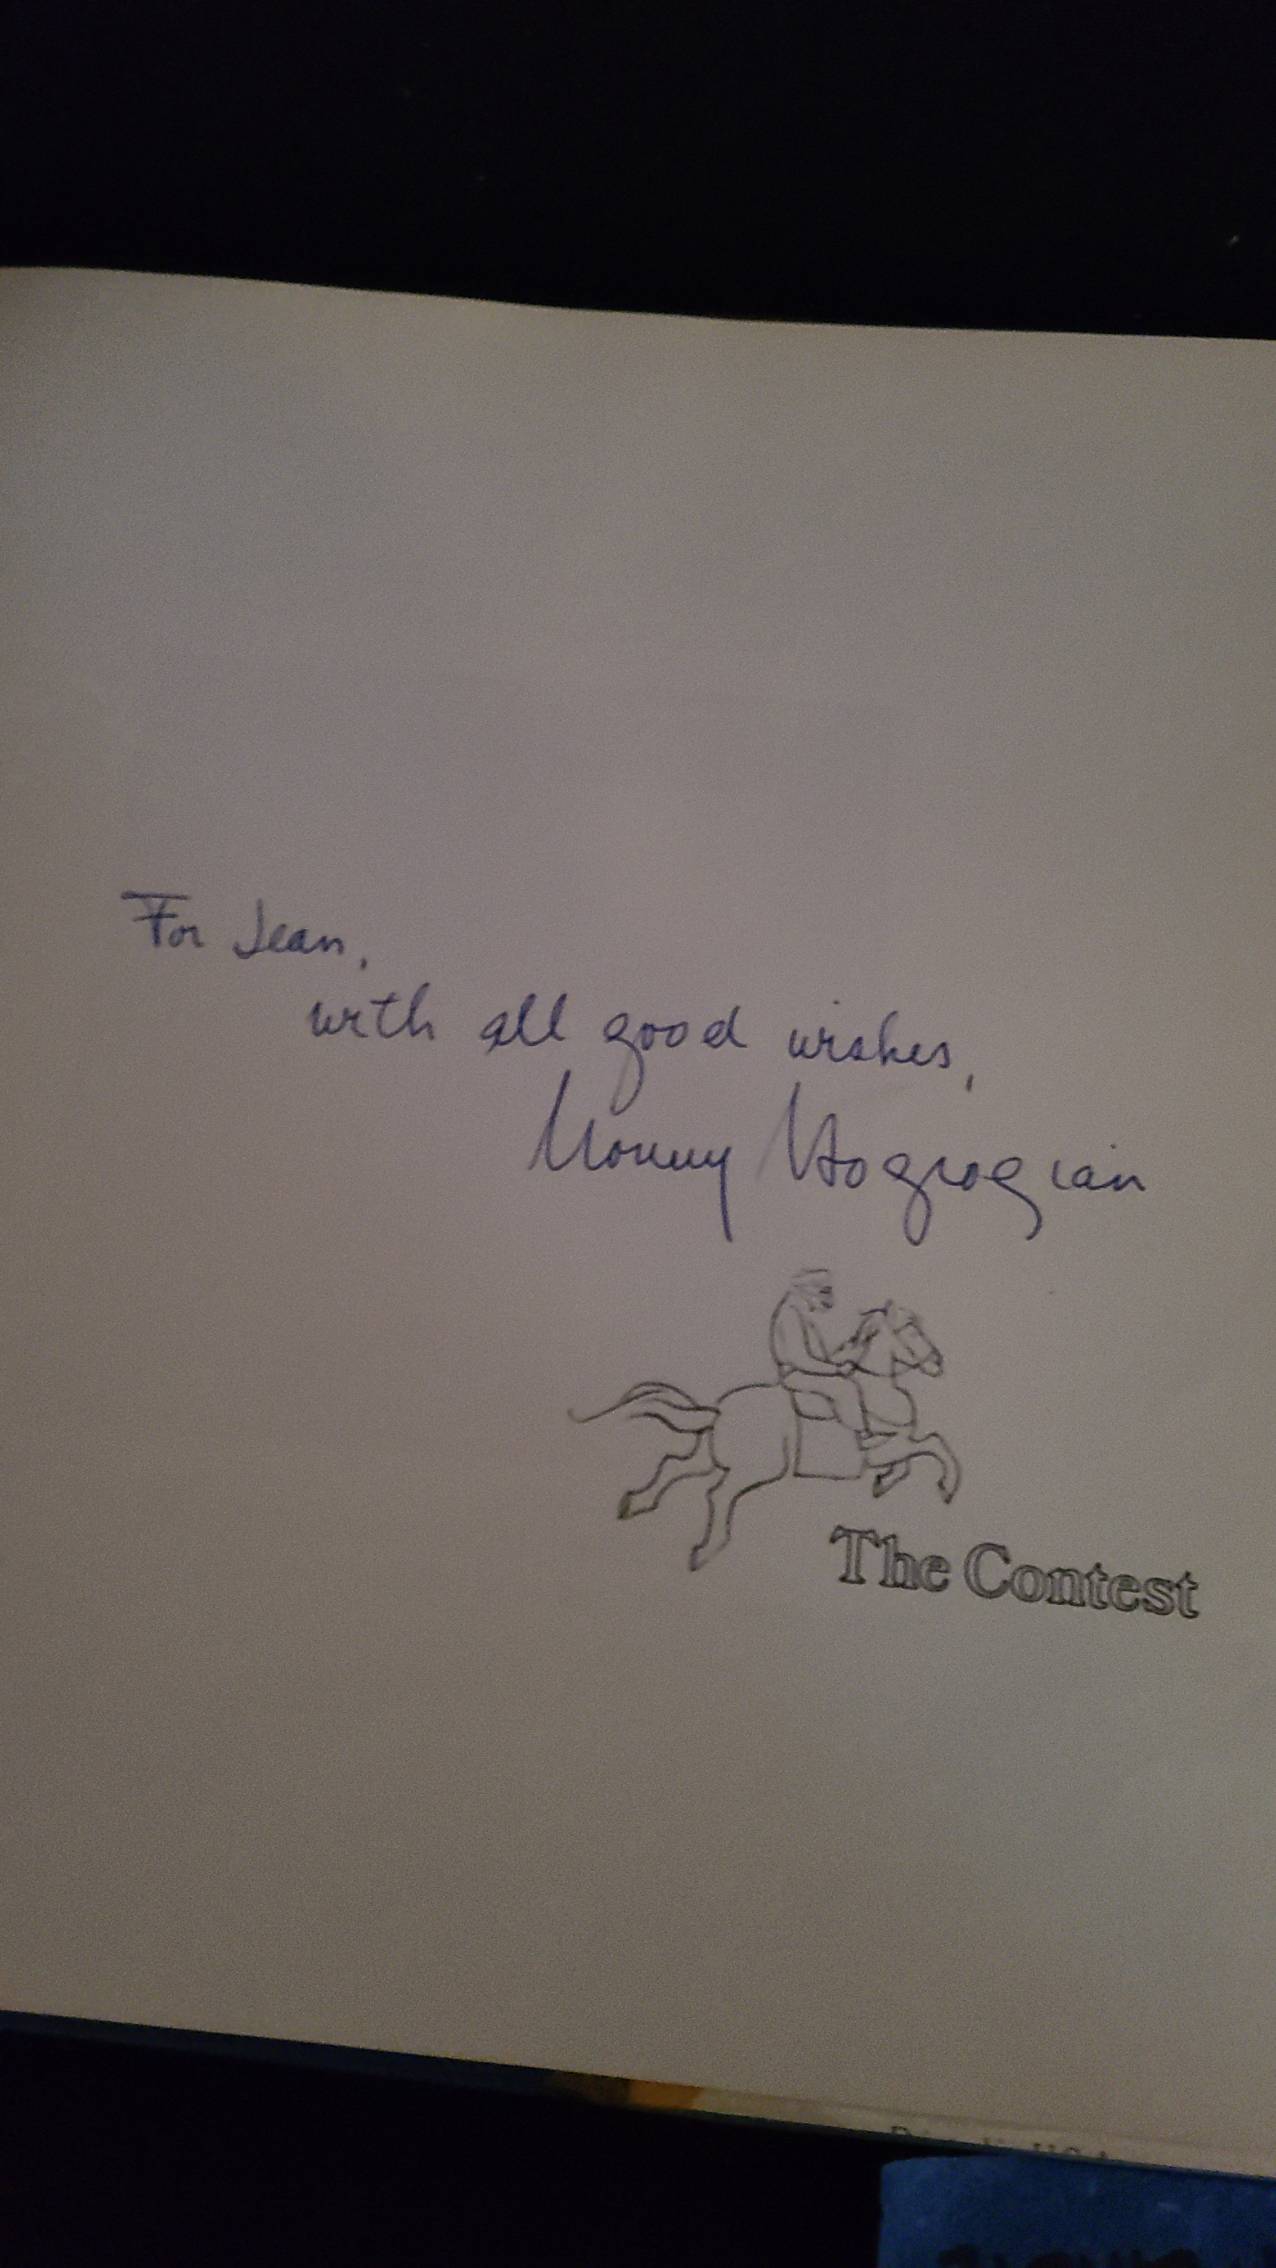 For Jean,
with all good wishes,
Nonny Hogrogian
The Contest